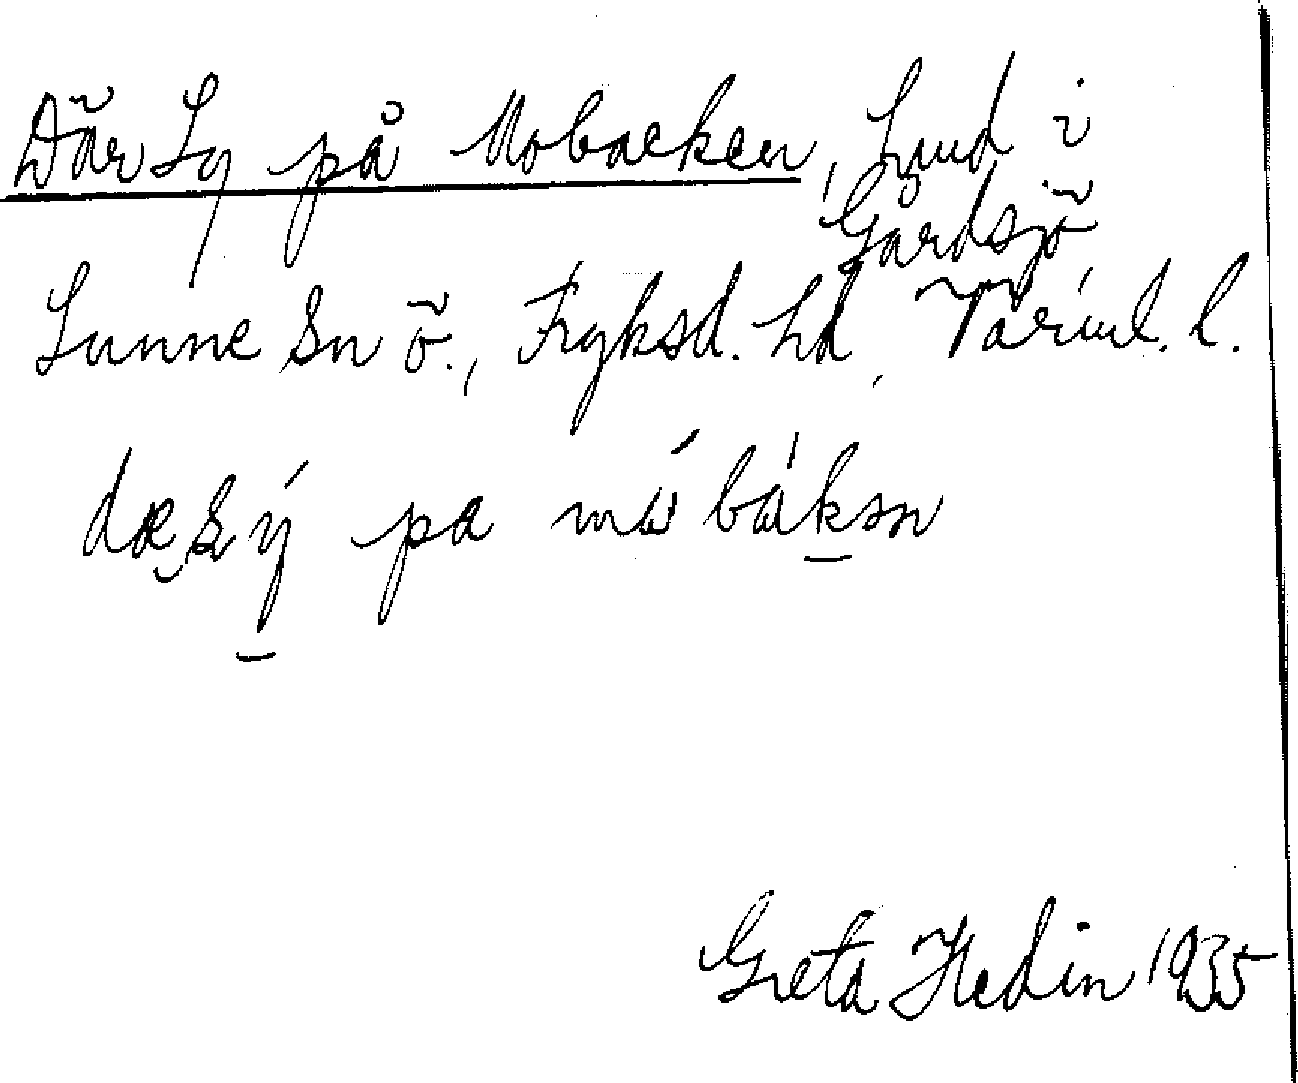 Där Sy på Mobacken, Lund i
Gårdsjö
Sunne sn ö., Fryksd. hd, Värml. l.
dæ sý pa mó bákən
Greta Hedin 1935